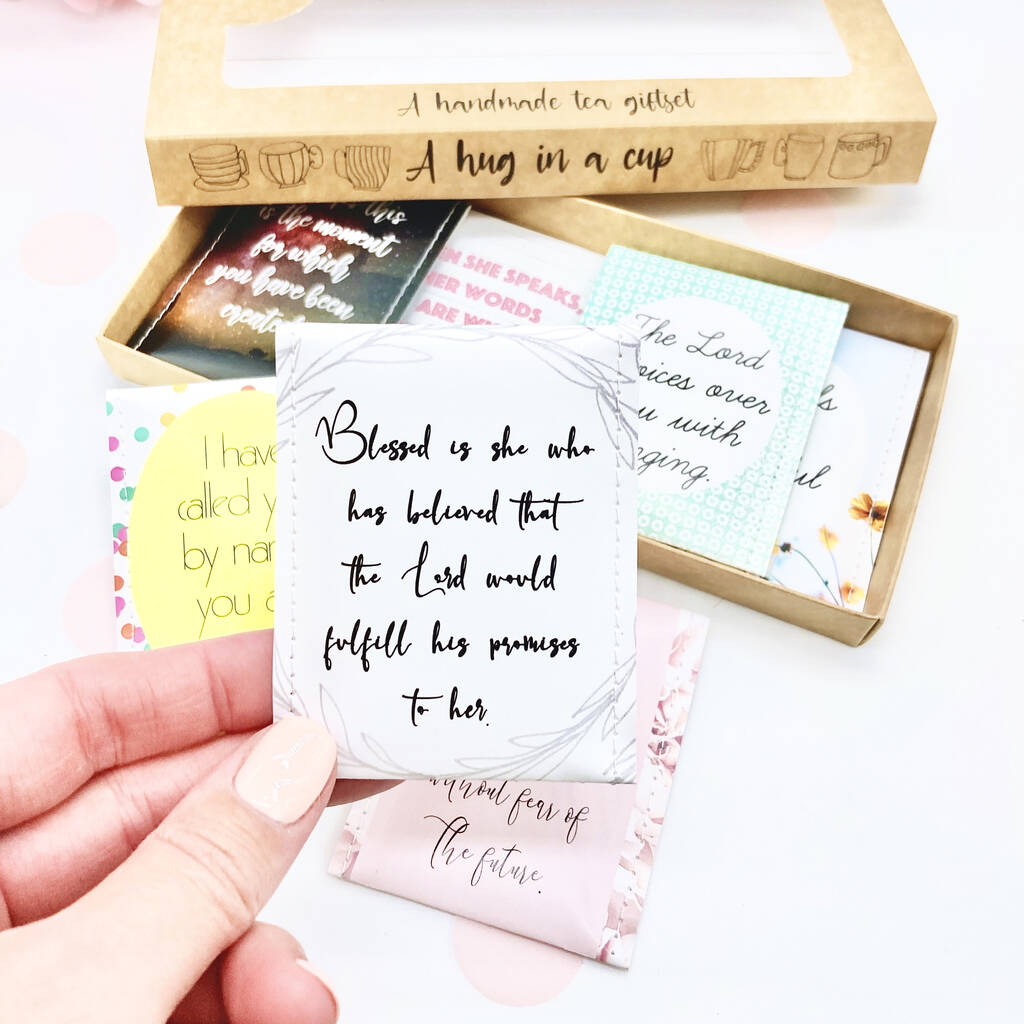 A handmade tea giftset
A hug in a cup
this
is the moment
for which
you have been
created
SHE SPEAKS,
HER WORDS
ARE
The Lord
over
with
I have
called
by
you
Blessed is she who
has believed that
the Lord would
fulfill his promises
to her.
without fear of
The future.